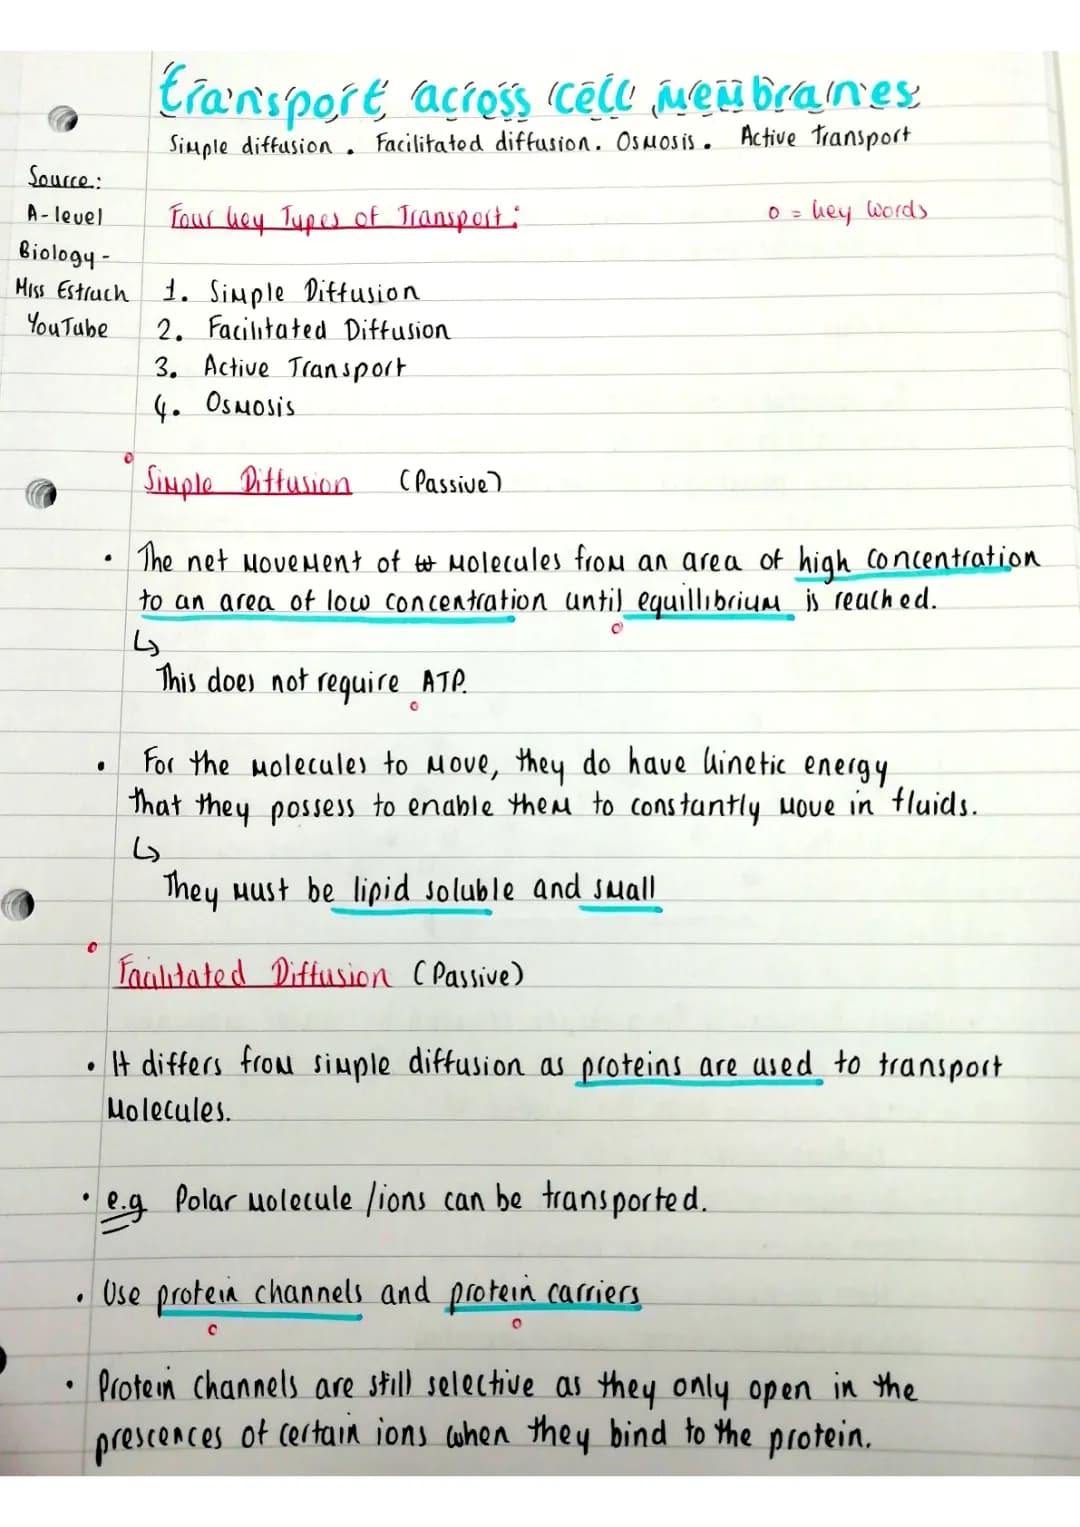 transport across cell membranes
Simple diffusion. Facilitated diffusion. Osmosis. Active Transport
Source:
A-level
Biology -
Miss Estruch
YouTube
Four key Types of Transport:
o = key words
1. Simple Diffusion
2. Facilitated Diffusion
3. Active Transport
4. Osmosis
Simple Diffusion (Passive)
• The net movement of molecules from an area of high concentration
to an area of low concentration until equillibrium is reached.
↳
This does not require ATP.
• For the molecules to move, they do have kinetic energy
that they possess to enable them to constantly move in fluids.
↳
They must be lipid soluble and small
Facilitated Diffusion (Passive)
• It differs from simple diffusion as proteins are used to transport
molecules.
• e.g Polar molecule /ions can be transported.
• Use protein channels and protein carriers
• Protein channels are still selective as they only open in the
prescences of certain ions when they bind to the protein.